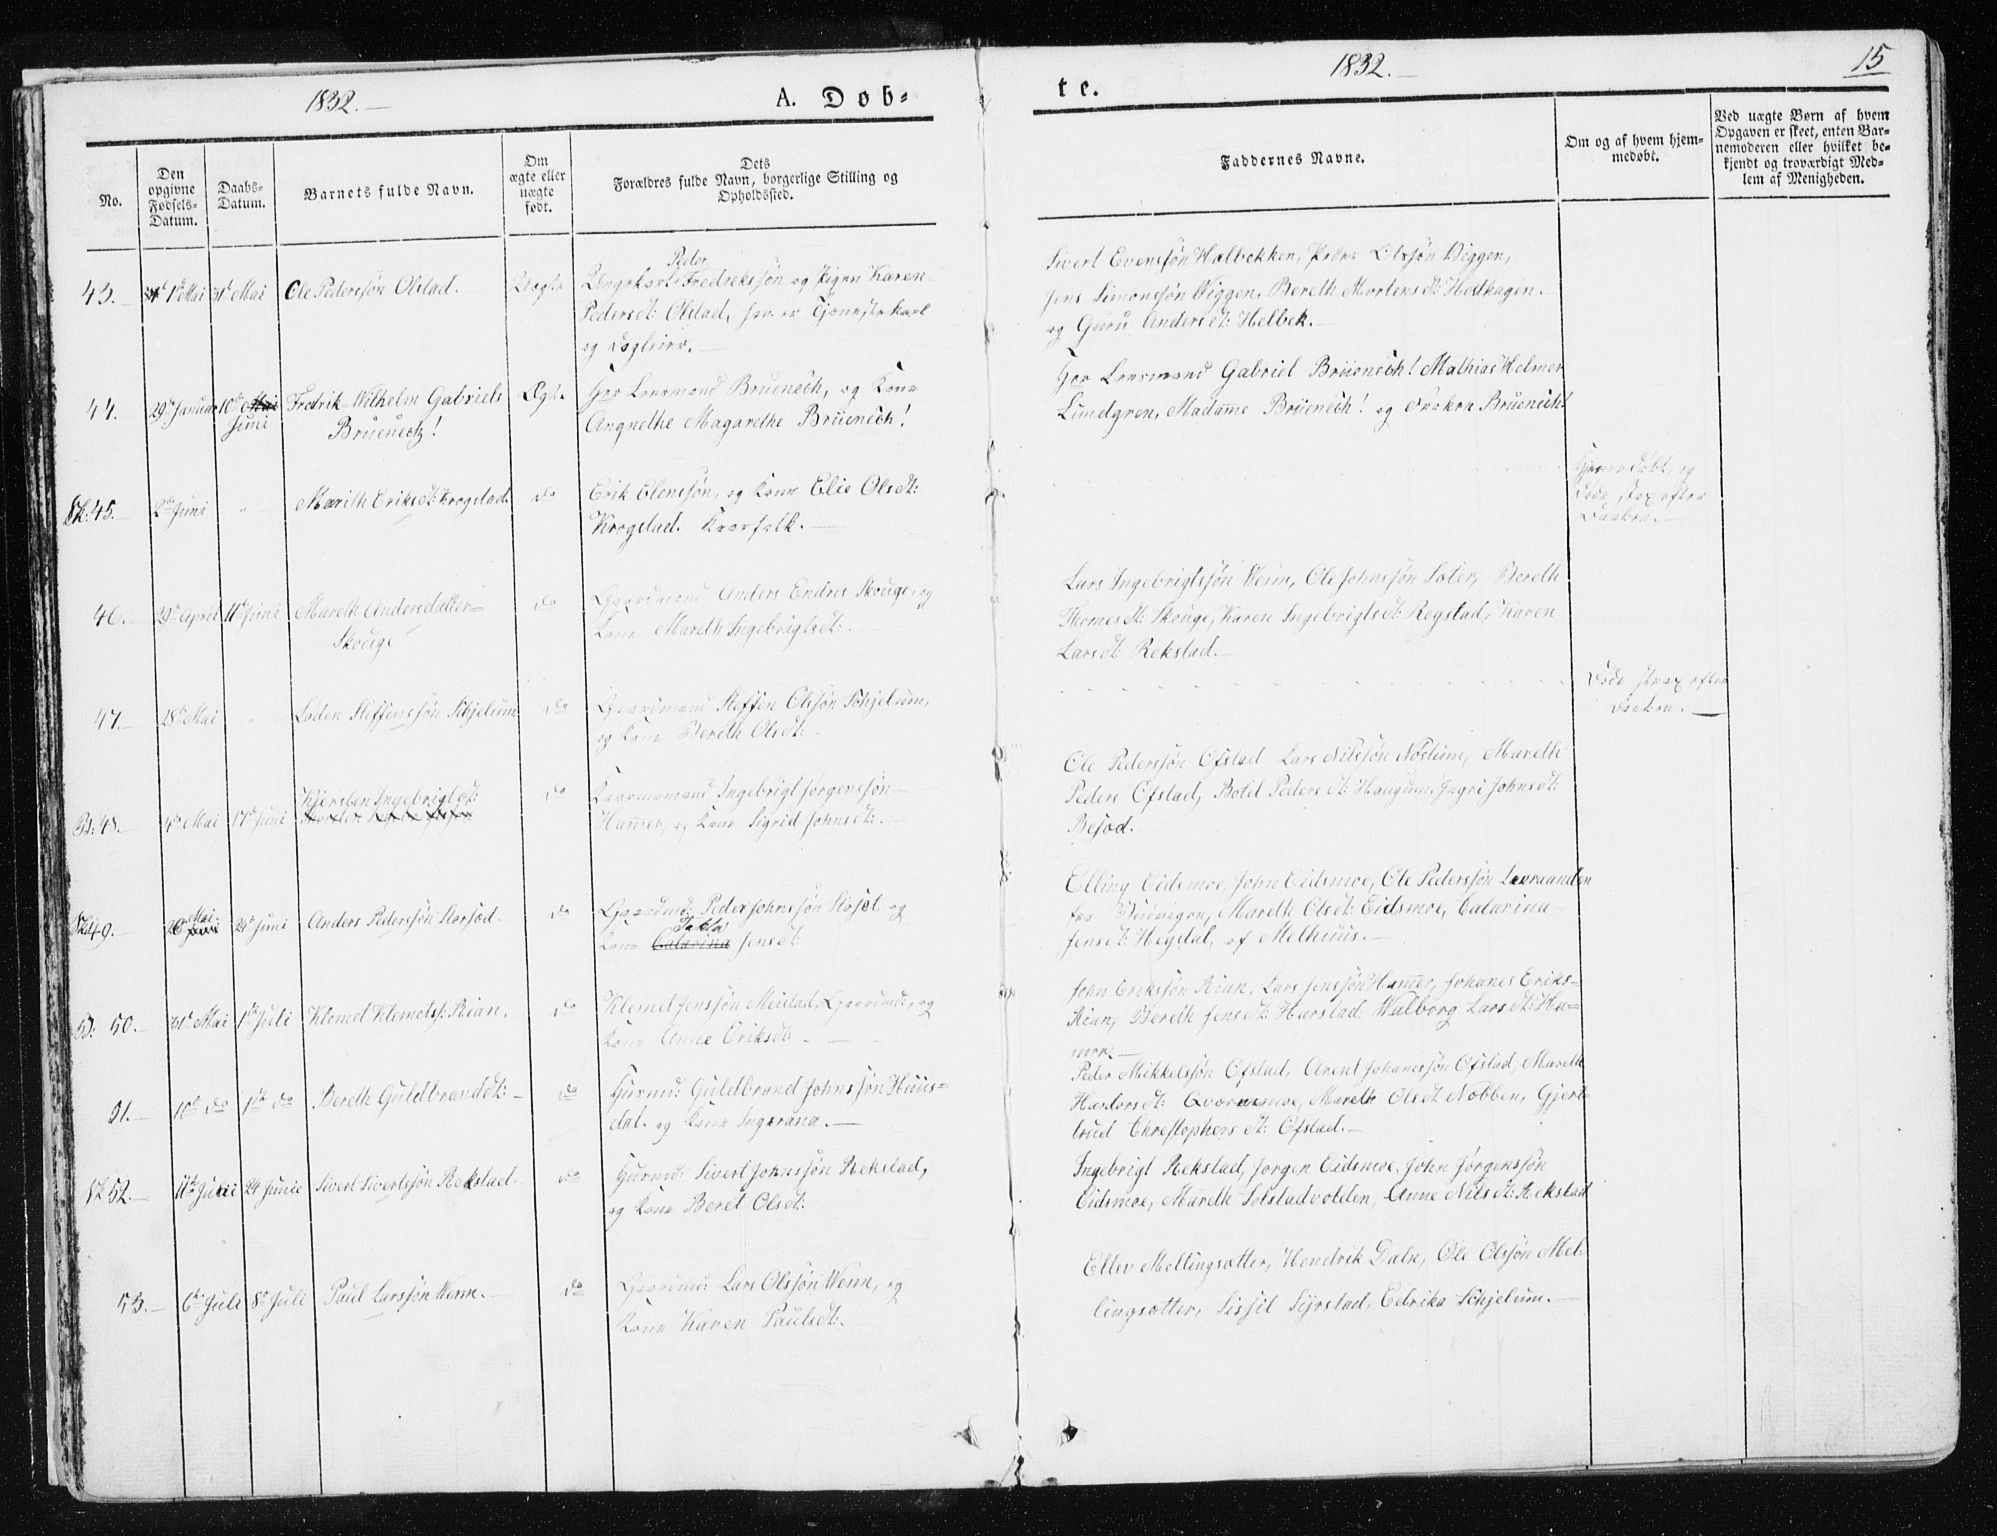 1832.
A. Døb=
te.
1832.
15
No.
Den opgivne Fødsels-Datum.
Daabs-Datum.
Barnets fulde Navn.
Om ægte eller uægte født.
Dets
Forældres fulde Navn, borgerlige Stilling og
Opholdssted.
Faddernes Navne.
Om og af hvem hjem-
medøbt.
Ved uægte Børn af hvem
Opgaven er skeet, enten Bar-
nemoderen eller hvilket be-
kjendt og troværdigt Med-
lem af Menigheden.
43. 1st Mai 31t Mai Ole Pederssøn Olstad. Uægte
Peder
Ungekarl Fredrekssøn og pigen Karen
Pedersdt: Olstad, han er Tjenestekarl
og Logleier.
Sivert Evenssøn Halbekken, Peder Olssøn Viggen,
Jens Simonssøn Viggen, Bereth Mortensdt: Hodhagen.
og Guru Andersdt: Helbek.
44. 29de Januar 10de Juni Fredrik Wilhelm Gabriels
Brüenech!
Ægte
Hør Lensmand Bruenech, og Kone
Angnethe Magarethe Brüenech!
Hør Lensmand Gabriel Brüenech! Mathias Helmer
Lindgren, Madame Brüenech! og Frøken Bruenech!
45. 2den Juni Marith Eriksdt: Krogstad. do
Erik Elenssøn, og Kone Elie Olsdt:
Krogstad.
Hjemmedøbt, og
Døde strax efter
Daaben.
46. 29de April 11te Juni Mareth Andersdatter
Skouge
do
Gaardmand Anders Endres Skouge, og
Kone Mareth Ingebrigtsdt:
Lars Ingebrigtssøn Wenn, Ole Johnssøn Soter, Bereth
Thomesdt: Skouge, Karen Ingebrigtsdt: Rogstad, Karen
Larsdt: Rekstad.
47. 28de Mai Loden Steffenssøn Schjelum do
Gaardmand Steffen Olssøn Schjelum,
og Kone Bereth Olsdt:
Døde strax efter
Daaben.
48. 4de Mai 17de Juni Kjersten Ingebrigtsdt: do
Ingebrigt Jørgenssøn
Hammer, og Kone Sigrid Johnsdt:
Ole Pederssøn Ofstad Lars Nilssøn Noslum, Mareth
Peders Ofstad, Botel Pedersdt: Haugum, Ingri Johnsdt:
Besod.
49. 20 Mai 24de Juni Anders Pederssøn Storsod. do
Gaardmd: Peder Johnssøn Stosel, og
Kone Catarina Jensdt:
Elling Eidsmoe, John Eidsmoe, Ole Pederssøn Leeraanden
fra Budvigen, Mareth Olsdt: Eidsmoe, Catarina
Jensdt: Hegdal, af Melhuus.
50. 31te Mai 1ste Juli Klemet Klemets: Rian. do
Klemet Jenssøn Meistad, Gaardmd:, og
Kone Anne Eriksdt:
John Erikssøn Rian, Lars Jenssøn Hamer, Johanes Eriks-
Rian, Bereth Jensdt: Harstad, Walborg Larsdt: Ha=
mer.
51. 10de do 1ste do Bereth Guldbranddt: do
Huusmd: Guldbrand Johnssøn Huus=
dal. og Kone Ingerana.
Peder Mikkelssøn Ofstad, Arent Johanssøn Ofstad, Mareth
Haldorsdt: Qværnmoe, Mareth Olsdt Nobben, Gjer-
trud Christophersdt: Ofstad.
52. 11te Juni 24 Junie Sivert Sivertssøn Rekstad. do
Huusmd: Sivert Johnssøn Rekstad,
og Kone Beret Olsdt:
Ingebrigt Rekstad, Jorgen Eidsmoe, John Jørgenssøn
Eidsmoe, Mareth Solstadvolden, Anne Nilsdt: Rekstad
53. 6te Juli 8de Juli Paul Larssøn Wenn. do
Gaardmd: Lars Olssøn Wenn, og
Kone Karen Paulsdt:
Ellev Mellingsætter, Hendrik Dale, Ole Olssøn Mel-
lingsætter, Sissil Syrstad, Eedrika Schjelum.